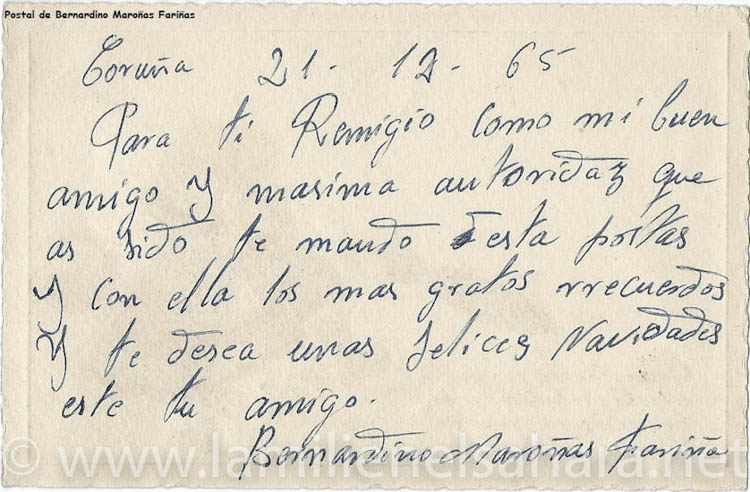 Postal de Bernardino Maroñas Fariñas
Coruña 21 - 12 - 65
Para ti Remigio como mi buen
amigo y masima autoridaz que
as sido te mando esta postas
y con ella los mas gratos rrecuerdos
y te desea unas felices Navidades
este tu amigo.
Bernardino Maroñas Fariña
© www.lamilienelsahara.net